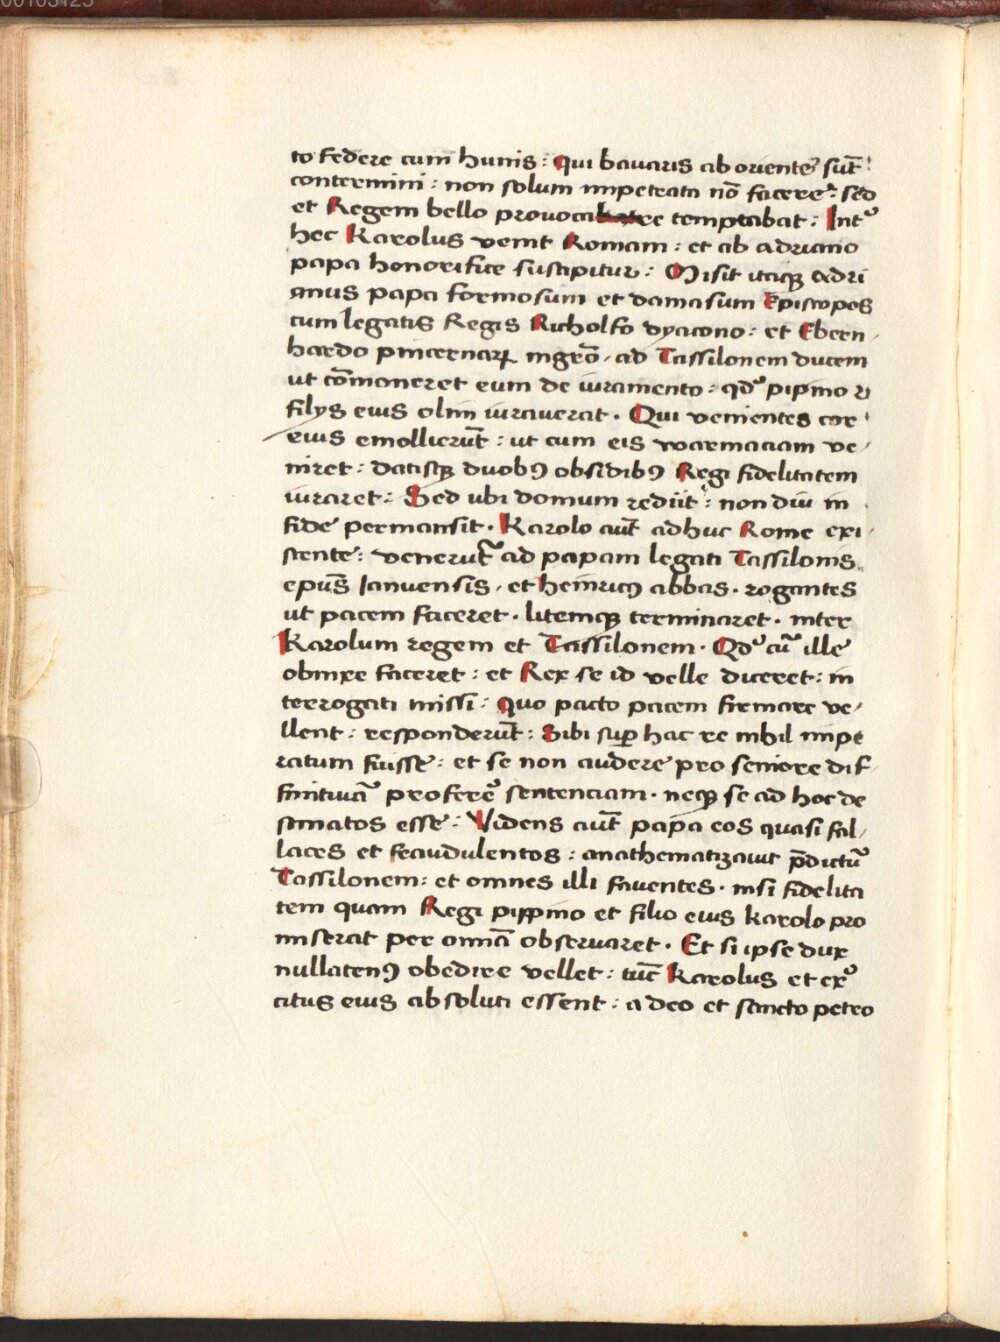 00103125
to federe cum hunis : Qui bavaris ab oriente sūt :
contermini : non solum imperata nō facere : sed
et Regem bello provocare temptabat : Int
hec Karolus venit Romam : et ab adriano
papa honorifice suscipitur : Misit itaqꝫ adri
anus papa formosum et damasum Episcopos
cum legatis Regis Richolfo dyacono : et Ebern
hardo pincernarꝝ mgrō, ad Tassilonem ducem
ut cōmoneret eum de iuramento : qd pipino ꝛ
filys eius olim iuraverat . Qui venientes cor
eius emollierūt : ut cum eis warmaciam ve
niret : datisqꝫ duobꝯ obsidibꝯ Regi fidelitatem
iuraret : Sed ubi domum rediit : non diu in
fide permansit . Karolo aūt adhuc Rome exi
stente : venerūt ad papam legati Tassilonis
epūs Ianuensis, et heinricꝯ abbas . rogantes
ut pacem faceret . litemqꝫ terminaret . inter
Karolum regem et Tassilonem . Qd cū ille
obnixe faceret : et Rex se id velle diceret : in
terrogati missi : Quo pacto pacem firmare ve
llent : responderūt : Sibi suꝑ hac re nihil impe
ratum fuisse : et se non audere pro seniore dif
finitivā proferre sentenciam . neqꝫ se ad hoc de
stinatos esse : Videns aūt papa eos quasi fal
laces et fraudulentos : anathematizavit p̄dictū
Tassilonem : et omnes illi faventes . nisi fidelita
tem quam Regi pippino et filio eius karolo pro
miserat per omīa observaret . Et si ipse dux
nullatenꝯ obedire vellet : tūc Karolus et exͬ
citus eius absoluti essent : a deo et sancto petro